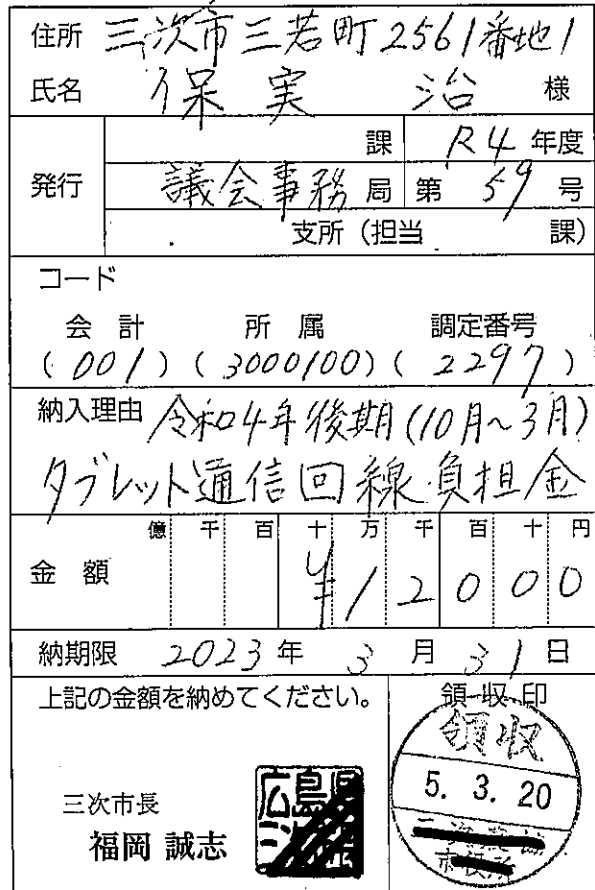 住所 三次市三若町2561番地1
氏名 保実 治 様
発行 課 R4年度
議会事務局 第 59 号
支所（担当 課）
コード
会計 所属 調定番号
(001) (3000100) (2297)
納入理由 令和4年後期(10月~3月)
タブレット通信回線負担金
億 千 百 十 万 千 百 十 円
金額 ¥12000
納期限 2023年 3月 31日
上記の金額を納めてください。
領収印
領収
5. 3. 20
市役所
三次市長
福岡 誠志
広島県